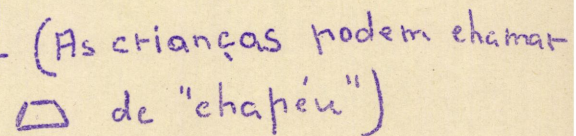 - (As crianças podem chamar
⏢ de "chapéu")